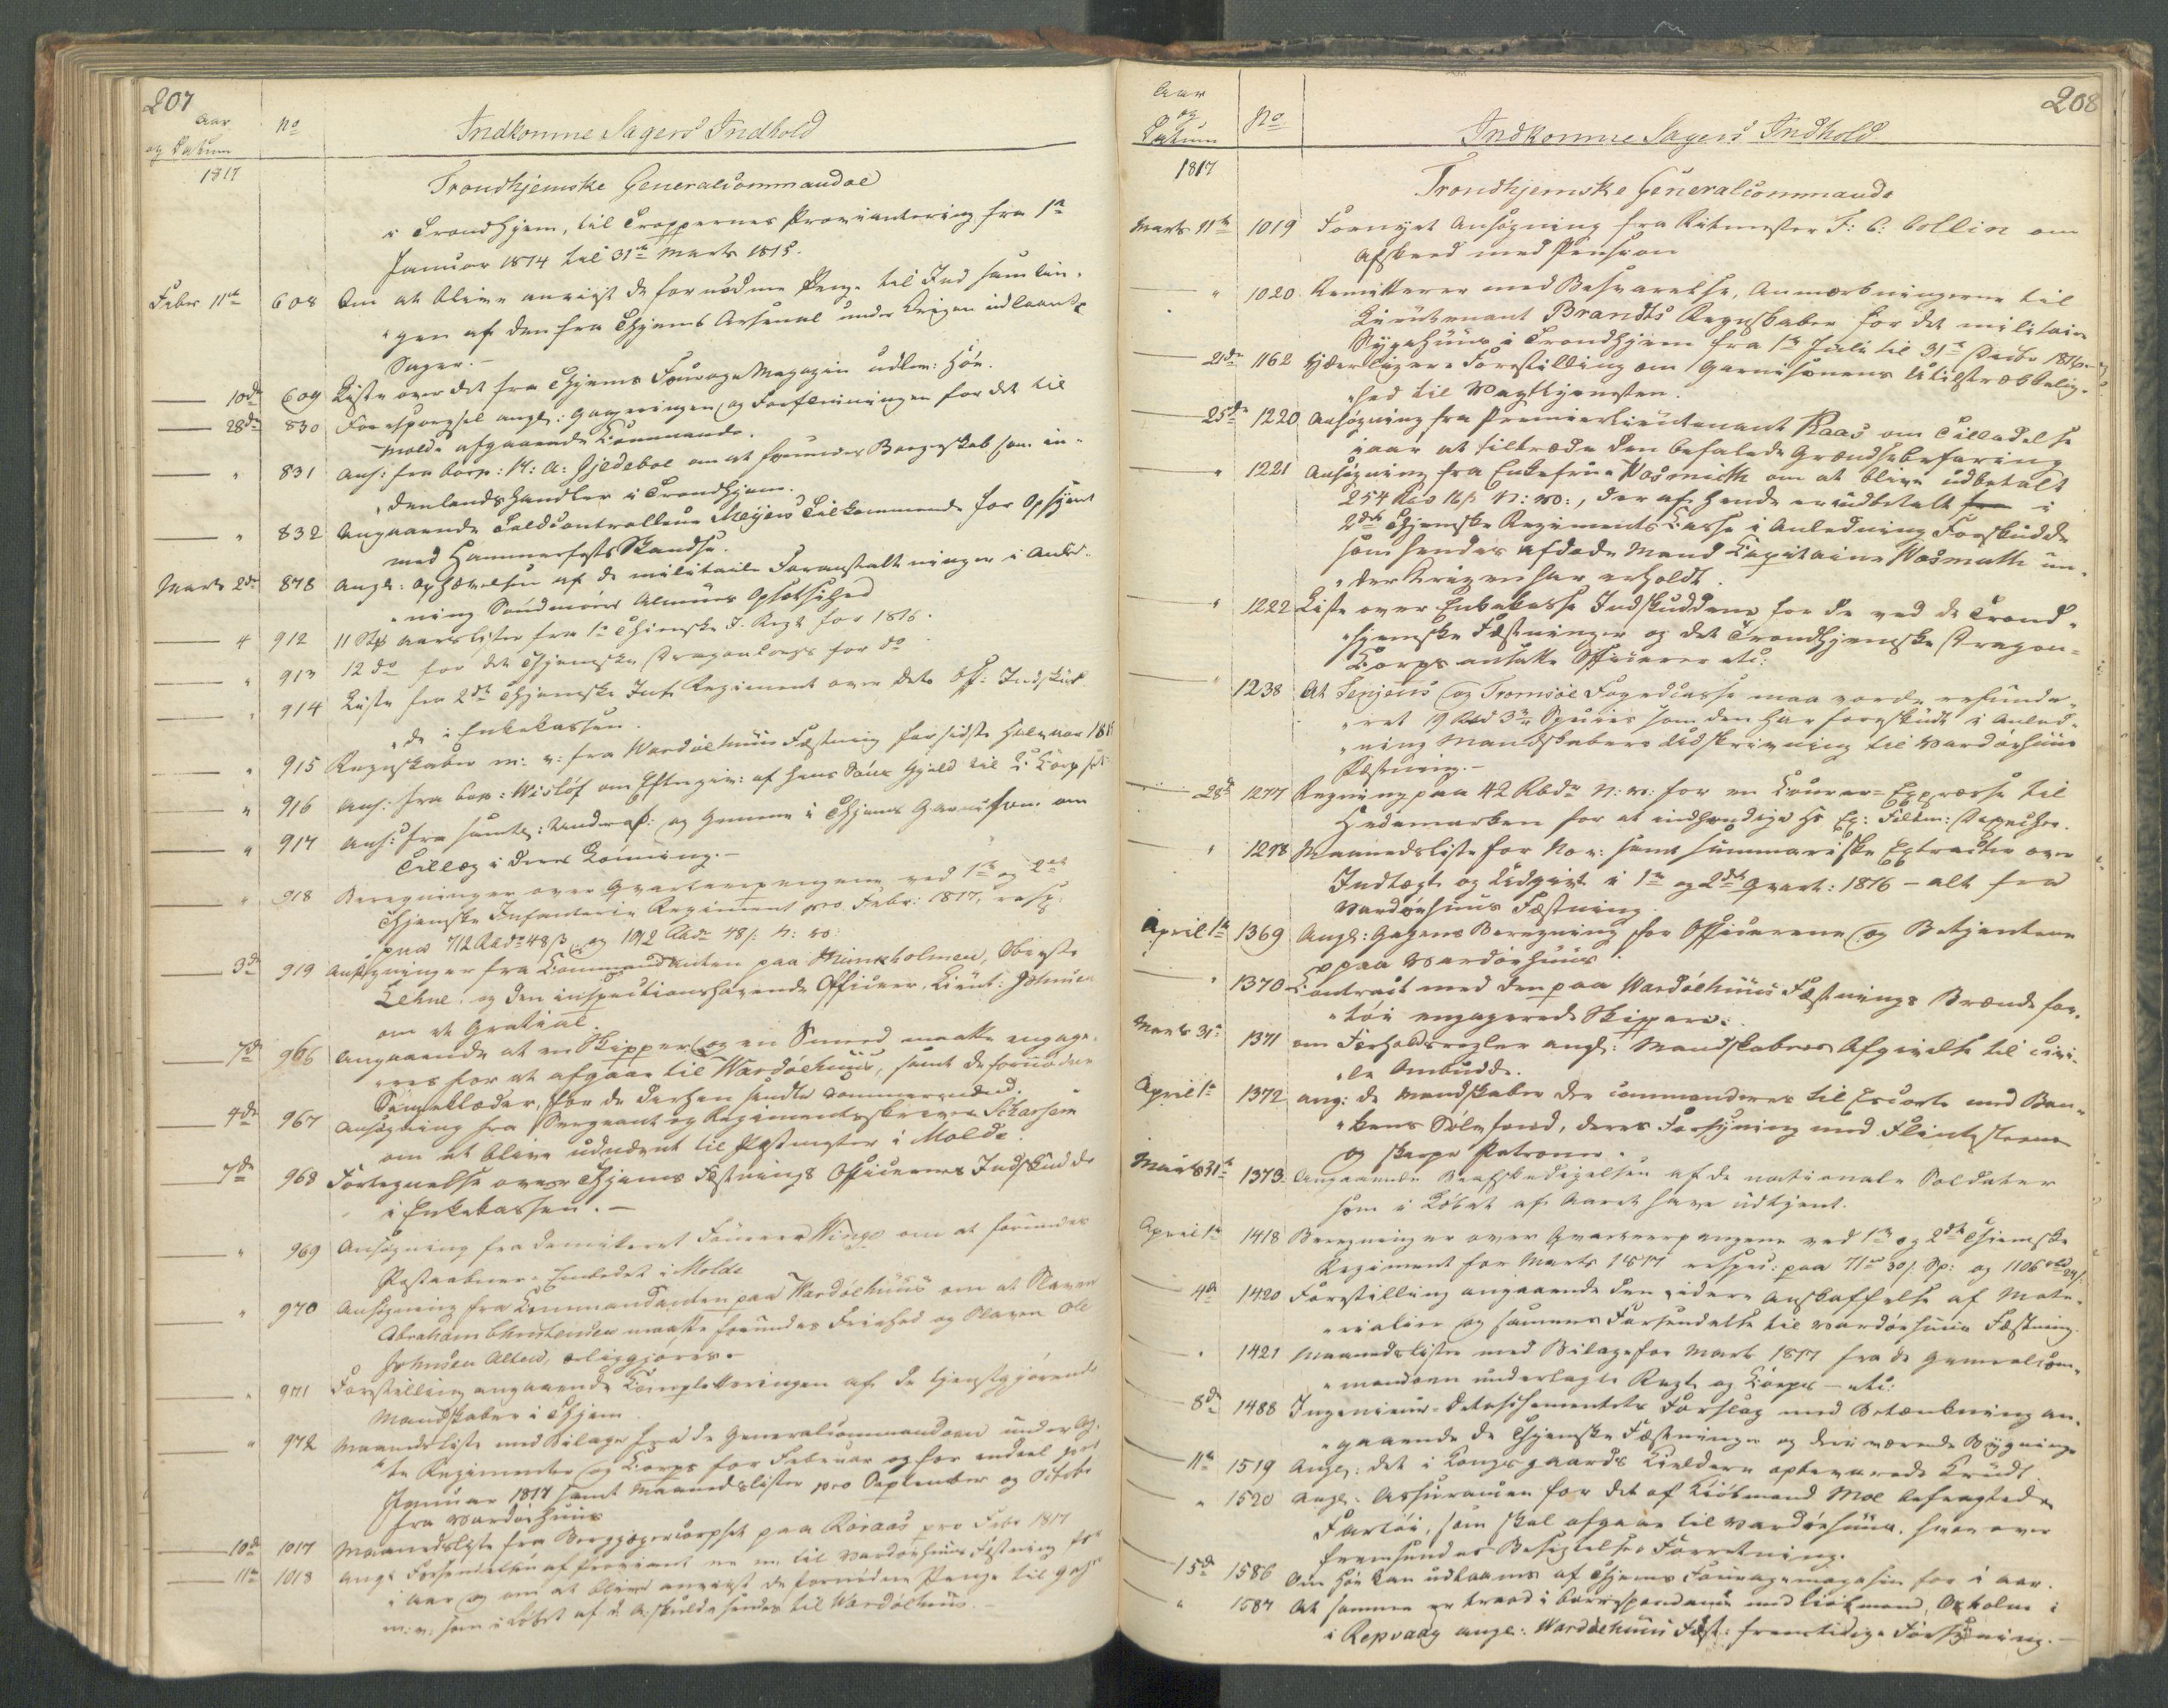 207
Aar
og Datum
No
Indkomne Sagers Indhold
1817
Trondhjemske Generalcommandoe
i Trondhjem, til Troppernes Proviantering fra 1ste
Januar 1814 til 31te Marts 1815.
Febr 11te 608 Om at blive anviist de fornødne Penge til Indsamlin-
gen af den fra Thjems Arsenal under Krigen udlaante
Sager.-
10de 609 Liste over det fra Thjems Fourage Magazin udlev: Høe.
28de 830 Forespørgsel angl: Gageringen og Forpleiningen for det til
Molde afgaaende Commando.
" 831 Ans: fra Corp: H: A: Gjedeboe om at forundes Borgerskab som in-
denlandsk Handler i Trondhjem.
" 832 Angaaende Toldcontrolleur Meyers Tilkommende for Opsynet
med Hammerfests Skandse.
Marts 2de 878 Angl: Ophævelsen af de militaire Foranstaltninger i Anled-
ning Søndmørs Almues Opsætsighed
4 912 11 Stk Aarslister fra 1ste Thjemske I. Regt for 1816.
" 913 12 do for det Thjemske Dragoncorps for do
" 914 Liste fra 2det Thjemske Inf: Regiment over dets Off: Indskud-
de i Enkekassen.
" 915 Regnskaber m: v: fra Wardøehuus Fæstning for sidste Halvaar 181
" 916 Ans: fra Cap: Wisløf om Eftergiv: af hans Søns Gjeld til L: Corpset
" 917 Ans: fra samtl: Underof: og Gemene i Thjems Garnison om
Tillæg i deres Lønning.-
" 918 Beregninger over Qvarteerpengene ved 1ste og 2det
Thjemske Infanterie Regiment pro Febr: 1817, resp:
paa 712 Rbdr 48 β og 1012 Rbdr 48 β. N: W:
3de 919 Ansøgninger fra Commandanten paa Munkholmen, Oberste
Lehne og den inspectionshavende Officeer, Lieut: Johnsen
om et Gratial.
7de 966 Angaaende at en Skipper og en Smed maatte engage-
res for at afgaae til Wardøehuus, samt de fornødne
Sængklæder, for de derhen sendte
4de 967 Ansøgning fra Sergeant og Regimentsskriver
om at blive udnævnt til Postmester i Molde.
7de 968 Fortegnelse over Thjems Fæstnings Officerernes Indskudde
i Enkekassen.-
" 969 Ansøgning fra demiteret Fourer Winge om at forundes
Postaabner-Embedet i Molde
" 970 Ansøgning fra Commandanten paa Wardøehuus om at Slaven
Abraham Christensen maatte forundes Frihed og Slaven Ole
Johnsen Alten,
" 971 Forestilling angaaende Completteringen af de tjenstgjørende
Mandskaber i Thjem.
" 972 Maanedsliste med Bilage fra de Generalcommandoen underlag-
te Regimenter og Corps for Februar og for endeel pro
Januar 1817 samt Maanedslister pro September og October
fra Wardøehuus
10de 1017 Maanedsliste fra Bergjægercorpset paa Røraas pro Febr 1817
11te 1018 Angl: Forsendelsen af Proviant m: m: til Wardøehuus Fæstning
i Aar og om at blive anviist de fornødne Penge til Gage
m: v: som i Løbet af d. A: skulde sendes til Wardøehuus.-
Aar
og
Datum
No
208
Indkomne Sagers Indhold
1817
Trondhjemske Generalcommando
Marts 11te 1019 Fornyet Ansøgning fra Ritmester F: C: Collin om
Afskeed med Pension
" 1020 Remitterer med Besvarelse, Anmærkningerne til
Lieutenant Brandts Regnskaber for det militaire
Sygehuus i Trondhjem fra 1ste Juli til 31te Decbr 1816
21de 1162 Forestilling om Garnisonens Utilstrækkelig-
hed til Vagttjenesten.
25de 1220 Ansøgning fra Premierlieutenant Raas om Tilladelse
i Aar at tiltræde den befalede Grændsebefaring
" 1221 Ansøgning fra Enkefrue Wosmuth om at blive udbetalt
254 Rbd 16 β. N: W:, der af hende er indbetalt i
2det Thjemske Regiments Casse i Anledning Forskudde
som hendes afdøde Mand Capitaine Wosmuth un-
der Krigen har erholdt.
" 1222 Liste over Enkekasse Indskuddene for de ved de Trond-
hjemske Fæstninger og det Trondhjemske Dragon-
Corps ansatte Officerer etc:
" 1238 At Senjens og Tromsøe Fogedcasse maa vorde refunde-
ret 19 Rbd 3 Species som den har forskudt i Anled-
ning Mandskabers Udskrivning til Wardøehuus
Fæstning.-
28de 1277 Regning paa 42 Rbdr N: W: for en Courer-Expresse til
Hedemarken for at indhændige Hs Ex: Feldm: Depecher.
" 1278 Maanedsliste for Nov: samt summariske Extracter over
Indtægt og Udgivt i 1ste og 2det Qvart: 1816 - alt fra
Wardøehuus Fæstning.
April 1te 1369 Angl: Gagens Beregning for Officererne og Betjentene
paa Wardøehuus.
" 1370 Contract med den paa Wardøehuus Fæstnings Brændefar-
tøi engagerede Skipper.
Marts 31te 1371 om Forholdsregler angl: Mandskabers Afgivelse til civi-
le Ombudde.
April 1te 1372 ang: de Mandskaber der commanderes til Escorte med Ban-
kens Sølvfond, deres Forsyning med Flintestene
og skarpe Patroner.
Marts 31te 1373 Angaaende Beafskedigelsen af de nationale Soldater
som i Løbet af Aaret have udtjent.
April 1te 1418 Beregninger over Qvarteerpengene ved 1ste og 2det Thiemske
Regiment for Marts 1817 respec: paa 71 30 β. Sp: og 1106 Rbd 24 β.
4de 1420 Forestilling angaaende den videre Anskaffelse af Mate-
rialier og sammes Forsendelse til Wardøehuus Fæstning.
" 1421 Maanedslister med Bilage for Marts 1817 fra de Generalcom-
mandoen underlagte Regt og Corps - etc:
8de 1488 Ingenieur-Detachementets Forslag med Betænkning an-
gaaende de Thjemske Fæstninger og derværende Bygninger
11te 1519 Angl: det i Kongsgaards Kieldere opbevarede Krudt
" 1520 Angl: Assurancen for det af Kiøbmand Moe befragtede
Fartøi, som skal afgaae til Wardøehuus, hvorover
fremsendes Besigtelses Forretning.
15de 1586 Om Høe kan udlaanes af Thjems Fouragemagasin for i Aar.
" 1587 At samme er traad i Correspondance med Kiøbmand, Oxholm i
i Repvaag angl: Wardøehuus Fæst: fremtidige Forsyning.-